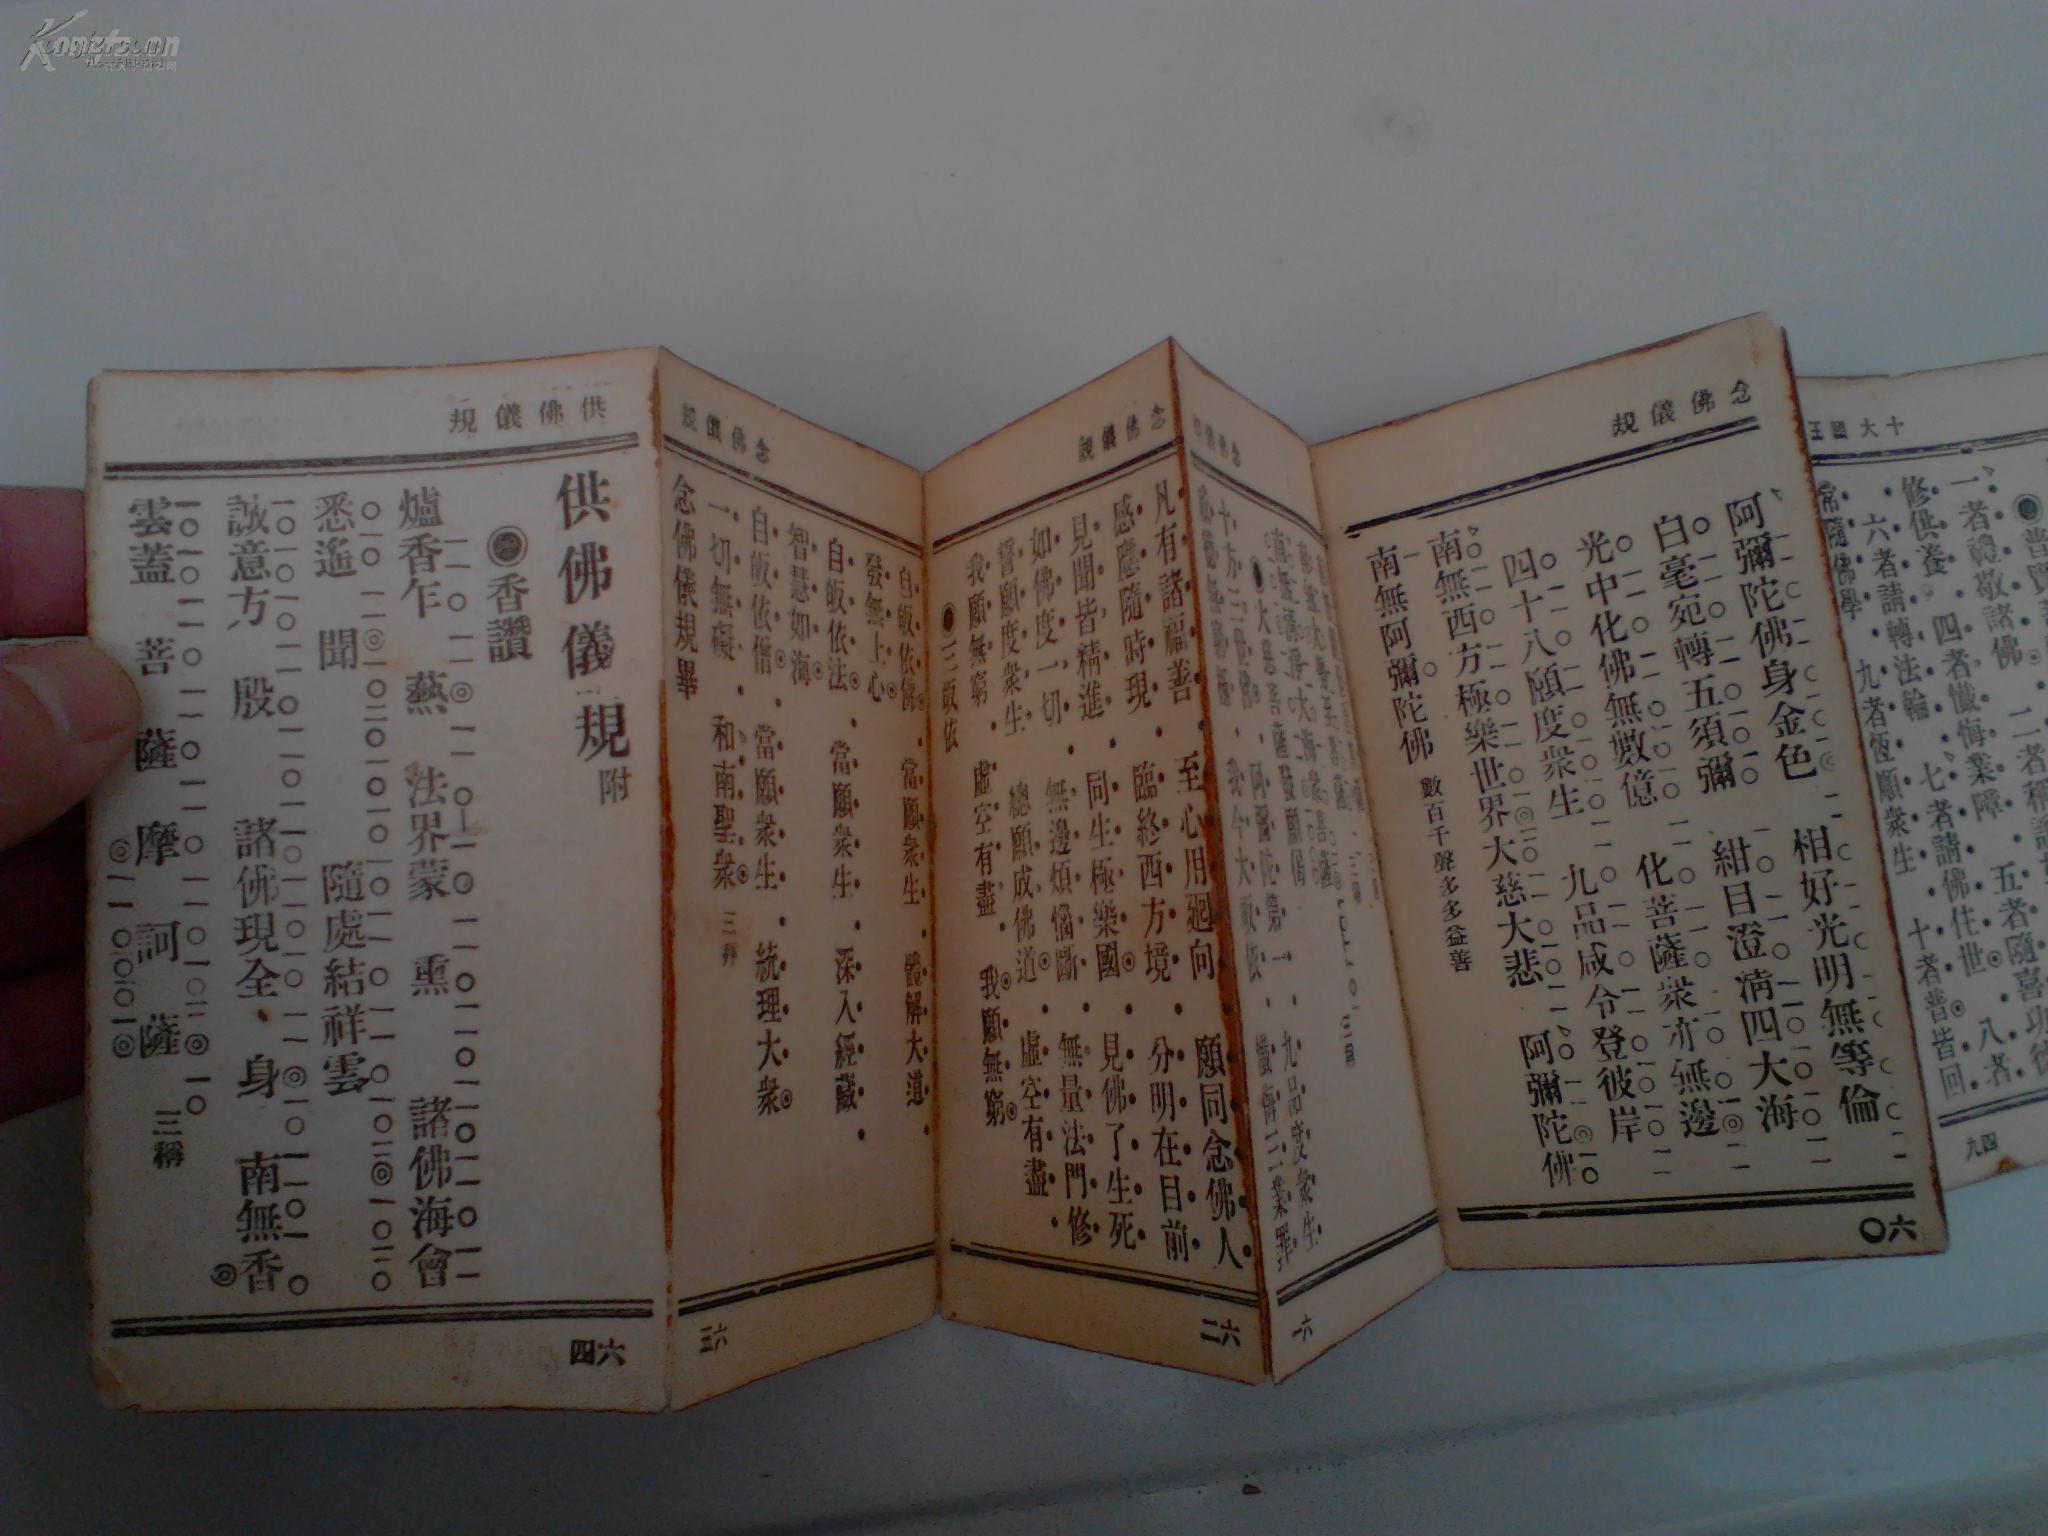 十大國王
一者禮敬諸佛
修供養 四者懺悔業障 五者隨喜功德
六者請轉法輪 七者請佛住世 八者
常隨佛學 九者恆順衆生 十者普皆回
四九
念佛儀規
阿彌陀佛身金色 相好光明無等倫
白毫宛轉五須彌 紺目澄淸四大海
光中化佛無數億 化菩薩衆亦無邊
四十八願度衆生 九品咸令登彼岸
南無西方極樂世界大慈大悲 阿彌陀佛
南無阿彌陀佛 數百千聲多多益善
六〇
念佛儀規
大慈菩薩發願偈
十方三世佛 阿彌陀第一 九品度衆生
我今大皈依 懺悔三業罪
六一
念佛儀規
凡有諸福善 至心用廻向 願同念佛人
感應隨時現 臨終西方境 分明在目前
見聞皆精進 同生極樂國 見佛了生死
如佛度一切 無邊煩惱斷 無量法門修
誓願度衆生 總願成佛道 虛空有盡
我願無窮 虛空有盡 我願無窮
三皈依
六二
念佛儀規
自皈依佛 當願衆生 體解大道
發無上心
自皈依法 當願衆生 深入經藏
智慧如海
自皈依僧 當願衆生 統理大衆
一切無礙 和南聖衆 三拜
念佛儀規畢
六三
供佛儀規
供佛儀規 附
香讚
爐香乍 爇 法界蒙 熏 諸佛海會
悉遙 聞 隨處結祥雲
誠意方 殷 諸佛現全 身 南無香
雲蓋 菩 薩 摩 訶 薩 三稱
六四